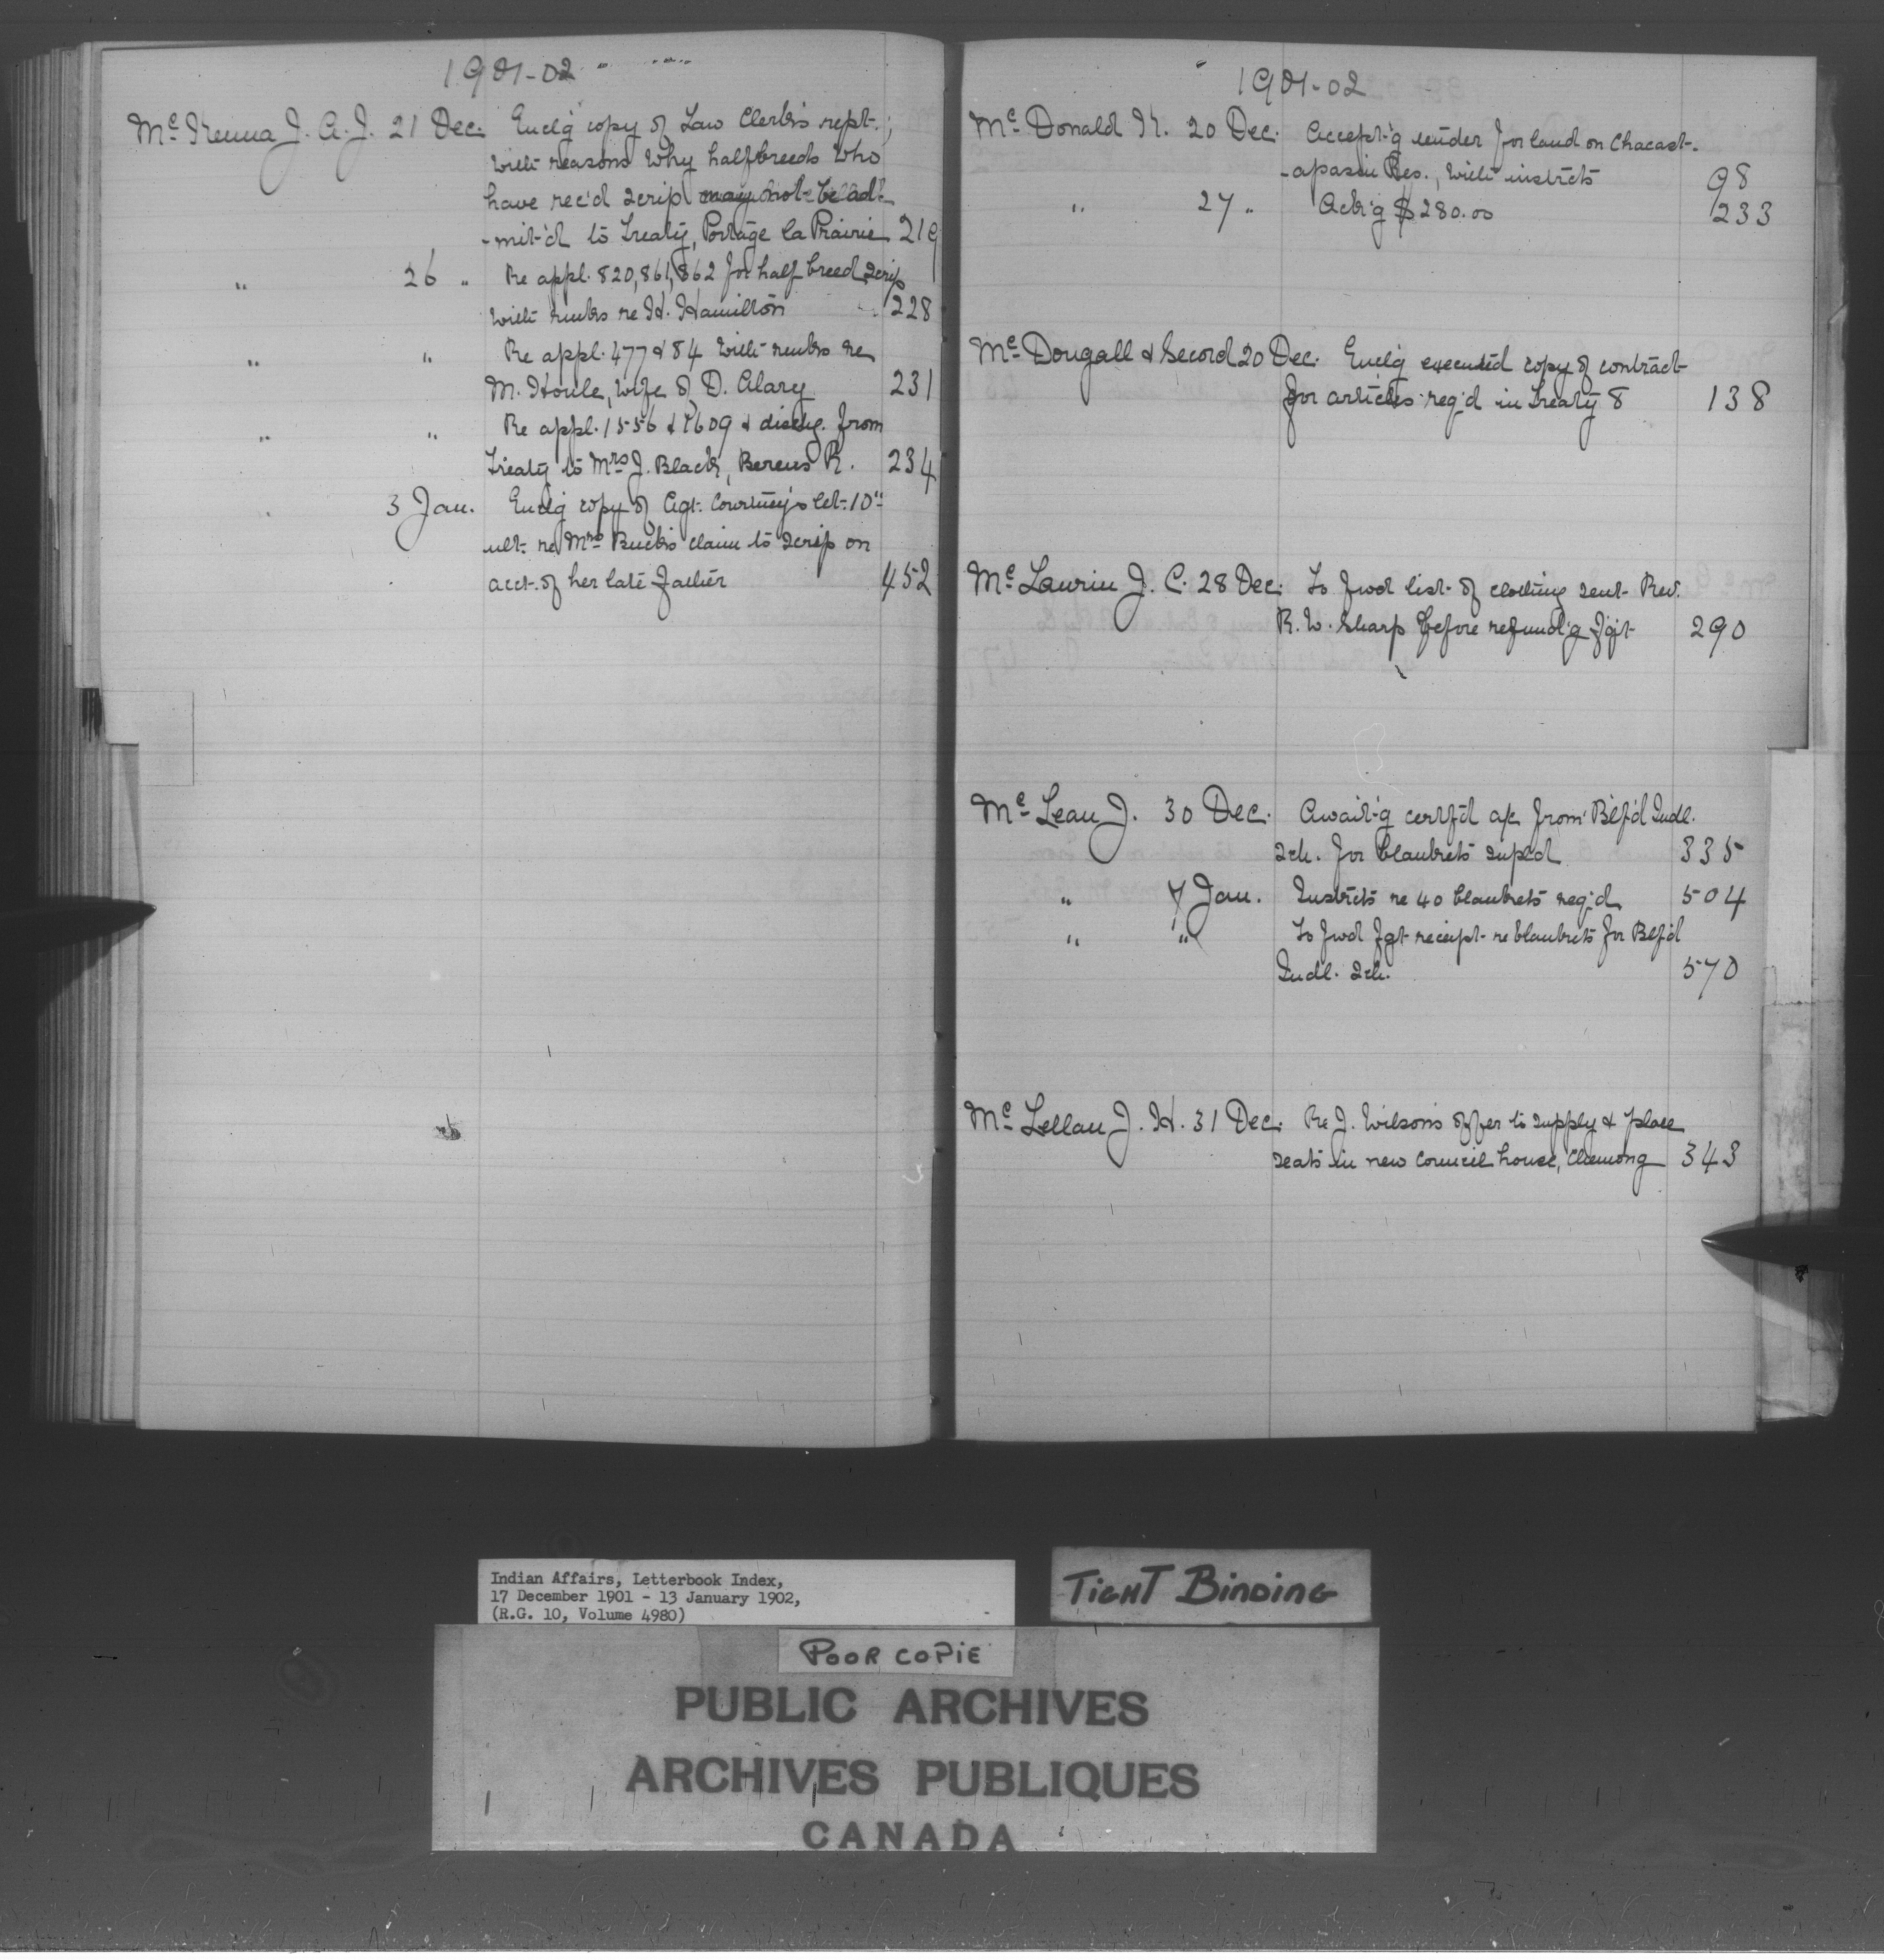 1901-02
Mc Kenna J. A. J. 21 Dec. Enclg copy of Law Clerk's rept.;
with reasons why halfbreeds who
have rec'd scrip may not be ad-
-mit'd to Treaty, Portage la Prairie 219
" 26 " Re appl. 820, 861, 862 for half breed scrip
with rmks re H. Hamilton 228
" " Re appl. 477 & 84 with rmks re
M. Houle, wife of D. Alary 231
" " Re appl. 1556 & 1609 & dischg. from
Treaty to Mrs J. Black, Berens R. 234
" 3 Jan. Enclg copy of Agt. Courtney's let. 10"
ult. re Mrs Buck's claim to scrip on
acct. of her late father 452
1901-02
Mc Donald K. 20 Dec. Accept'g tender for land on Chacast-
-apasin Res., with instrcts 98
" 27 " Ack'g $280.00 233
Mc Dougall & Secord 20 Dec. Enclg executed copy of contract
for articles req'd in Treaty 8 138
Mc Laurin J. C. 28 Dec. To fwd list of clothing sent Rev.
R. W. Sharp before refund'g fgt 290
Mc Lean J. 30 Dec. Await'g certf'd a/c from Bl'f'd Indl.
Sch. for blankets supl'd 335
" 7 Jan. Instrcts re 40 blankets req'd 504
" " To fwd fgt receipt re blankets for Blf'd
Indl. Sch. 570
Mc Lellan J. H. 31 Dec. Re J. Wilson's offer to supply & place
seats in new Council house, Chemong 343
Indian Affairs, Letterbook Index,
17 December 1901 - 13 January 1902,
(R.G. 10, Volume 4980)
TIGHT BINDING
POOR COPIE
PUBLIC ARCHIVES
ARCHIVES PUBLIQUES
CANADA